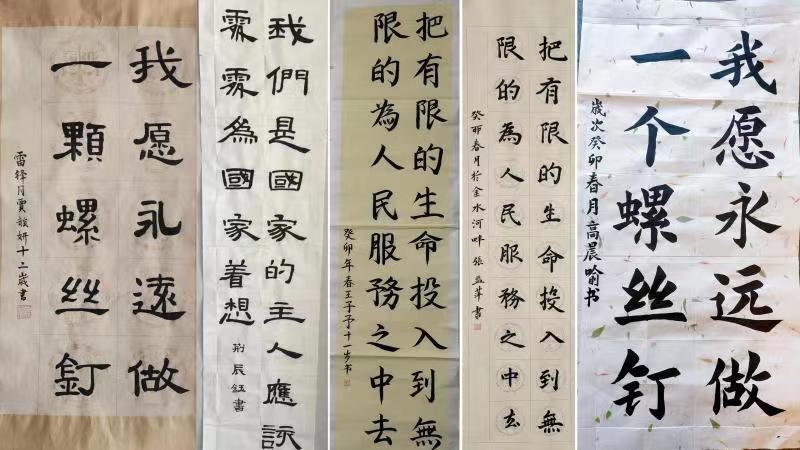 我愿永遠做
一顆螺丝釘
雷锋月贾馥妍十二歲書
我們是國家的主人應該
處處為國家着想
荊辰鈺書
把有限的生命投入到無
限的為人民服務之中去
癸卯年春王子予十一岁书
把有限的生命投入到無
限的為人民服務之中去
癸卯春月於金水河畔 張益萍書
我愿永远做
一个螺丝钉
歲次癸卯春月高晨喻书